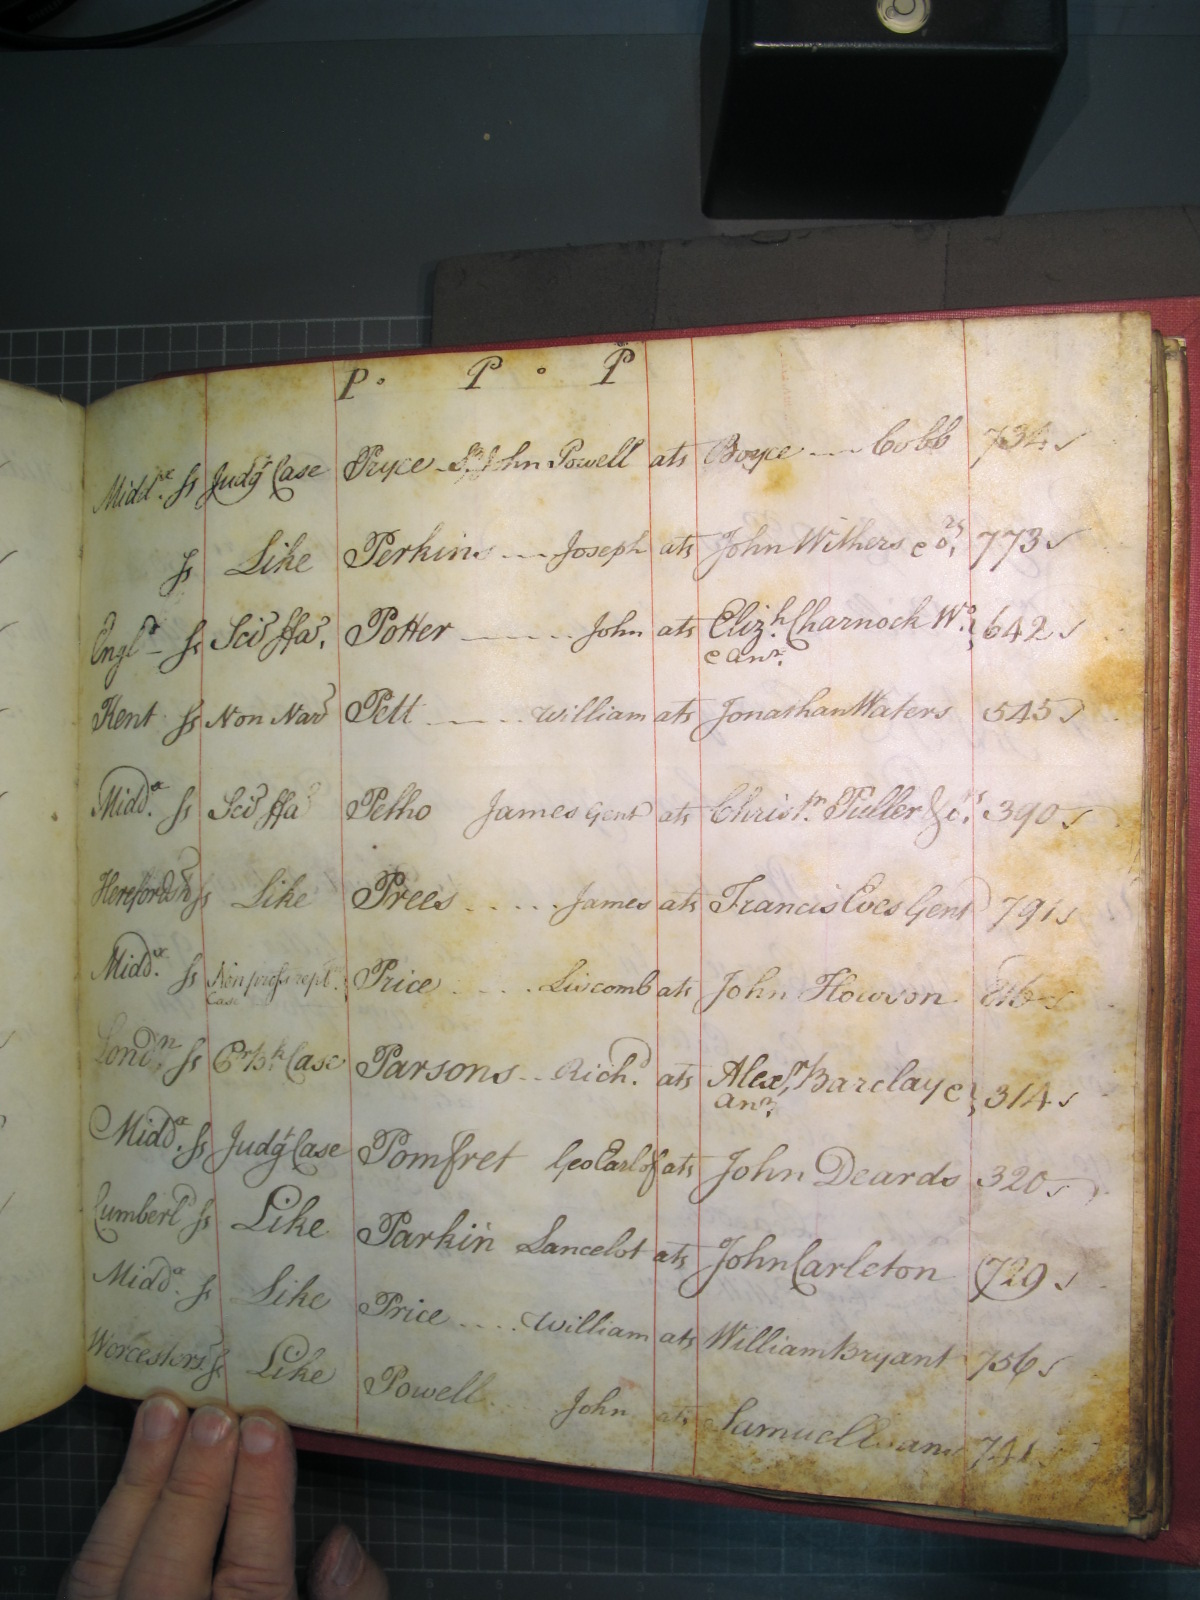 P. P. P
Midd.x ss Judg.t Case Pryce John Powell ats Boyce Cobb 734 s
ss Like Perkins Joseph ats John Withers e o.rs 773 s
Engl.d ss Scir ffas. Potter John ats Eliz.h Charnock W.o 642 s
e an.r
Kent ss Non Nar Pett William ats Jonathan Waters 545 s
Midd.x ss Scir ffa Petho James Gent ats Christ.r Fuller & o.rs 390 s
Herefordsh ss Like Prees James ats Francis Eves Gent 791 s
Midd.x ss Non pross rept. Price Liscomb ats John Howson 816 s
Case
Lond.n ss Case Parsons Rich.d ats Alex.r Barclay e 314 s
an.r
Midd.x ss Judg.t Case Pomfret Geo Earl of ats John Deards 320 s
Cumberl.d ss Like Parkin Lancelot ats John Carleton 729 s
Midd.x ss Like Price William ats William Bryant 756 s
Worcesters ss Like Powell John ats Samuell 741 s